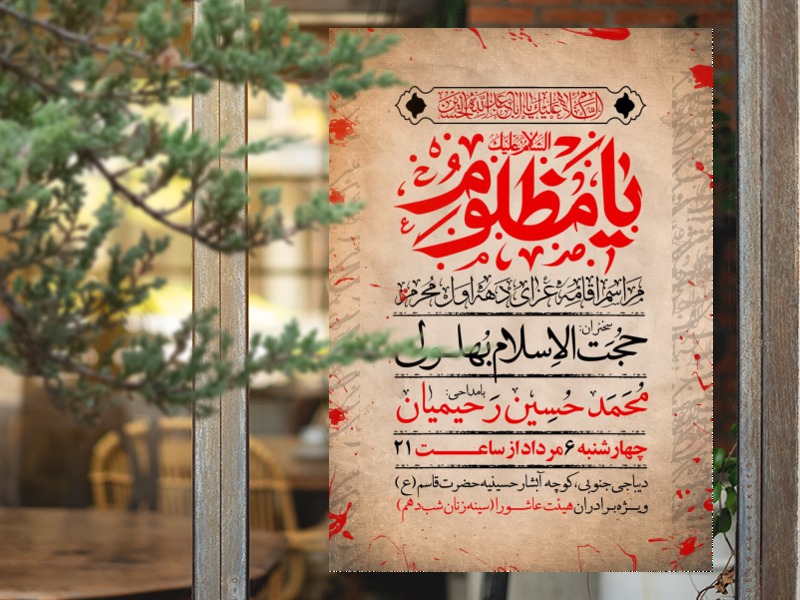 السلام علیک یا اباعبدالله الحسین
السلام علیک
یا مظلوم
مراسم اقامه عزای دهه اول محرم
سخنران:
حجت الاسلام بهلول
بامداحی:
محمد حسین رحیمیان
چهارشنبه ۶ مرداد از ساعت ۲۱
دیباجی جنوبی، کوچه آبشار حسینیه حضرت قاسم (ع)
ویژه برادران هیئت عاشورا (سینه زنان شب دهم)